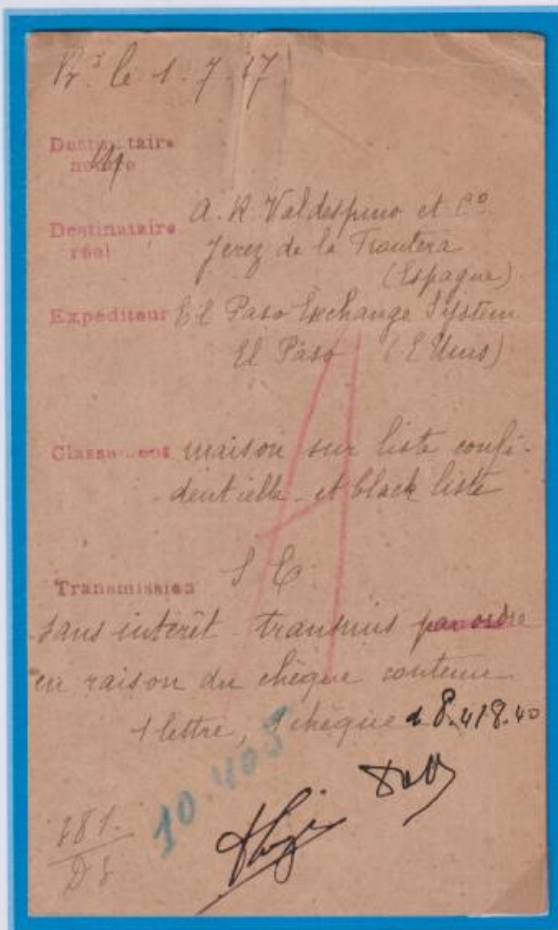 le 1. 7. 17
Destinataire
Destinataire A. R. Valdespino et Co
réel Jerez de la Frontera
(Espagne)
Expéditeur El Paso Exchange System
El Paso (E Unis)
Classement maison sur liste confi-
dentielle et black liste
Transmission S E
sans intérêt transmis par ordre
en raison du chèque contenu
1 lettre, 1 chèque 8.418.40
10.405